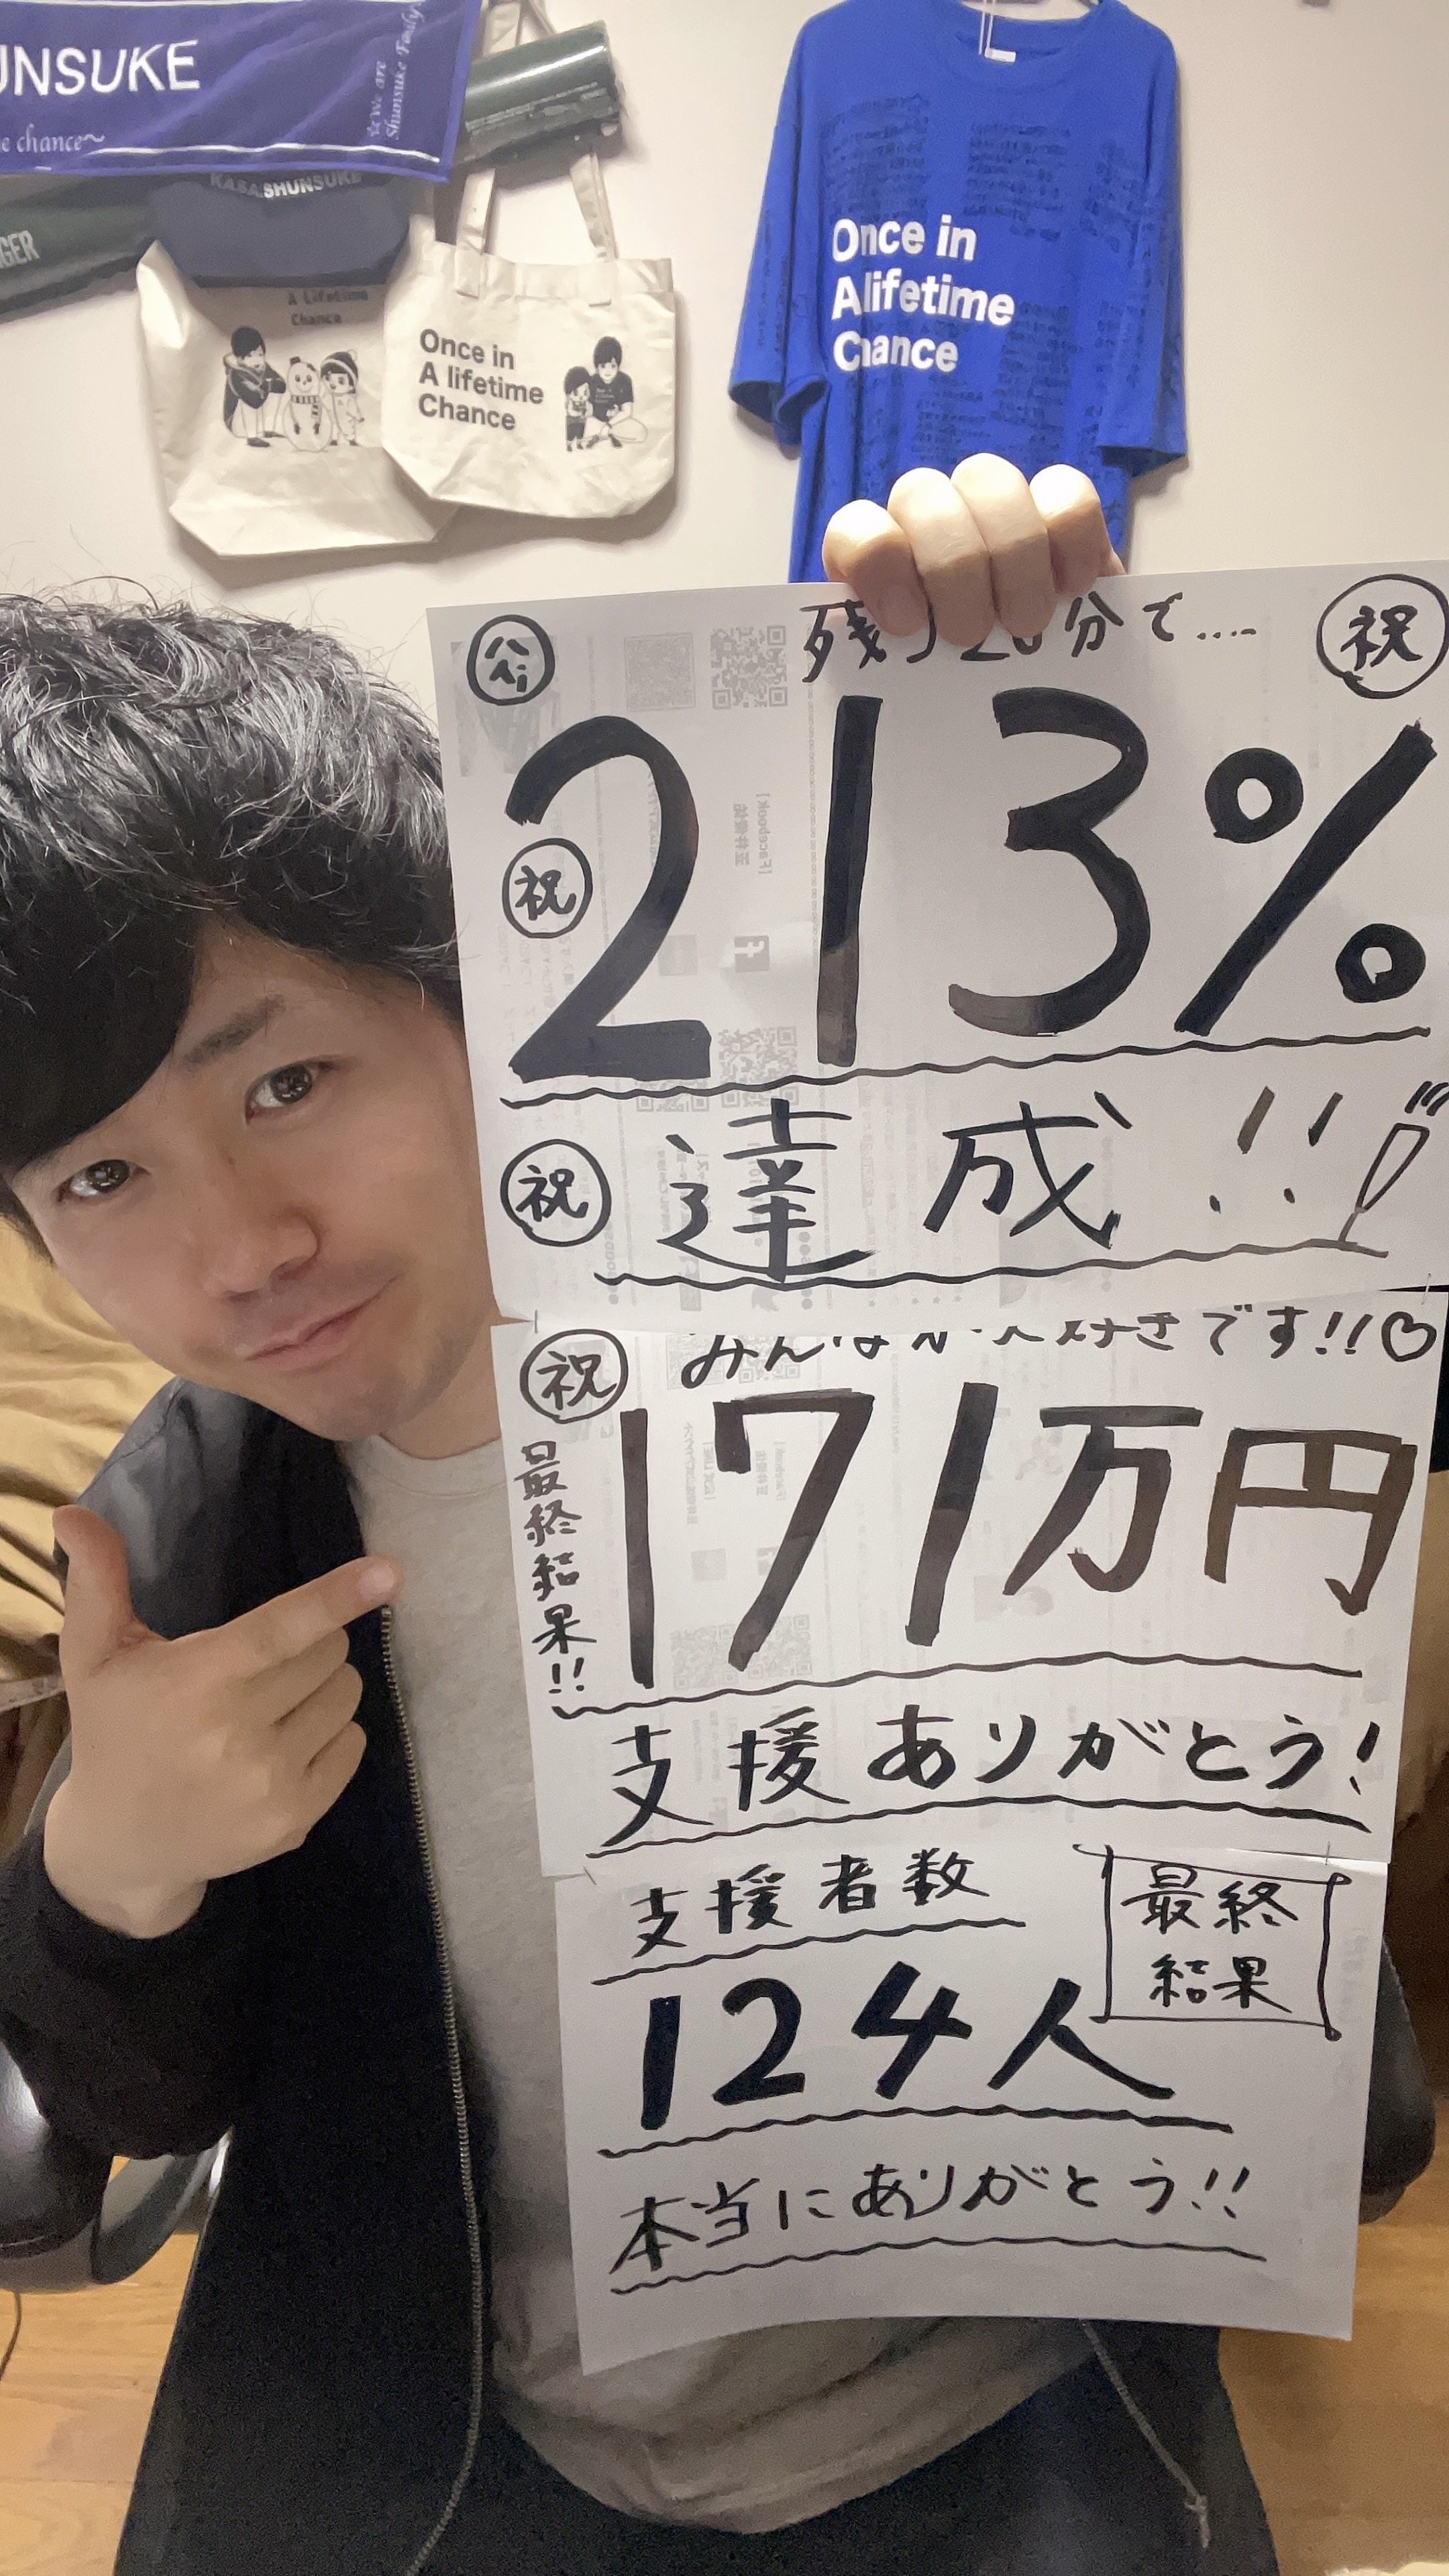 UNSUKE
e chance~
☆We are
Shunsuke Family
KASA SHUNSUKE
GER
A Lifetime
Chance
Once in
A lifetime
Chance
Once in
A lifetime
Chance
残り20分で....
祝
213%
祝
祝
達成!!
祝
みんなが大好きです!!♡
最終結果!!
171万円
支援ありがとう!
支援者数
最終
結果
124人
本当にありがとう!!
[Facebook]